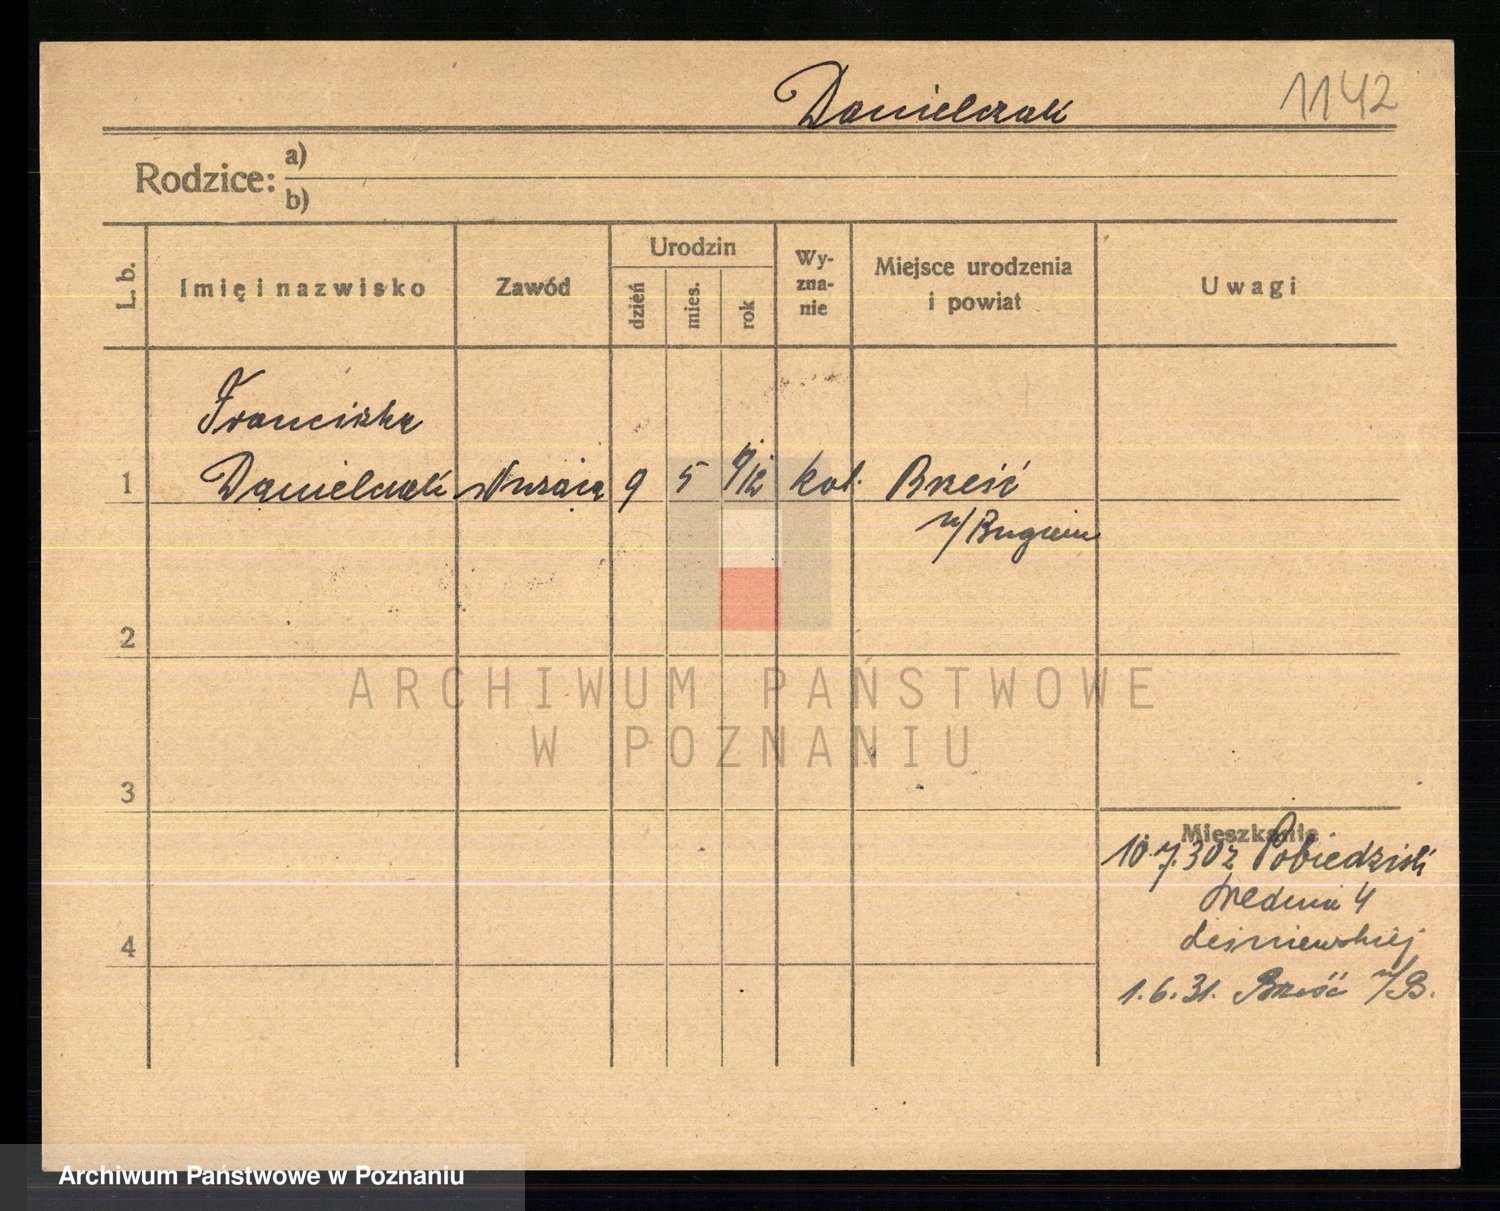 Danielczak 1142
Rodzice: a)
b)
L. b. Imię i nazwisko Zawód Urodzin dzień mies. rok Wyznanie Miejsce urodzenia i powiat Uwagi
Franciszka
1 Danielczak 9 5 912 kat. Brześć
n/Bugiem
2
ARCHIWUM PAŃSTWOWE
W POZNANIU
3
Mieszkanie
10.7.30 z Pobiedzisk
Średnia 4
Leśniewskiej
4
1.6.31. Brześć n/B.
Archiwum Państwowe w Poznaniu